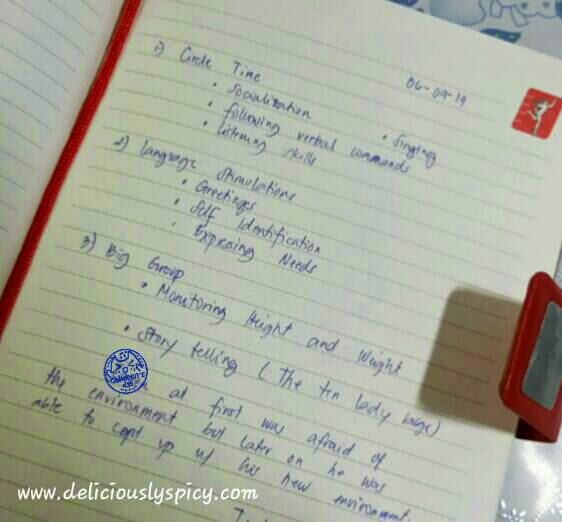 06-09-19
1) Circle Time
• Socialization
• Singing
• following verbal commands
• listening skills
2) Language Stimulations
• Greetings
• Self Identification
• Expressing Needs
3) Big Group
• Monitoring Height and Weight
• Story telling (The ten lady bugs)
at first was afraid of
the environment but later on he was
able to cope up w/ his new environment.
CHILDREN'S
www.deliciouslyspicy.com